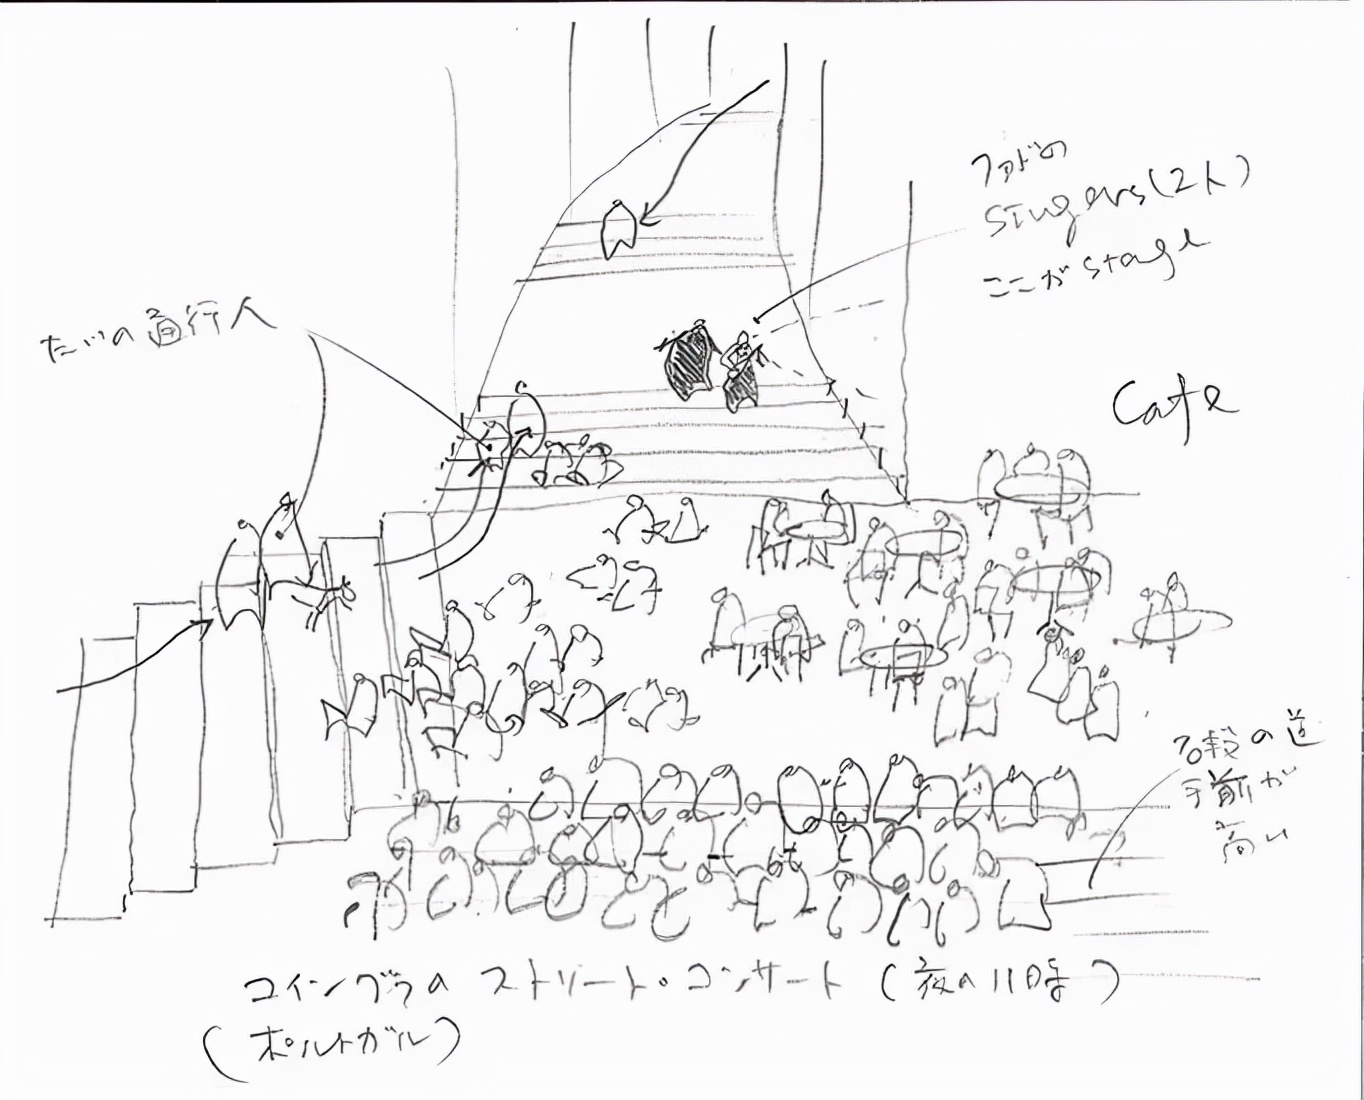 ファドの
Singers(2人)
ここがstage
ただの通行人
Cafe
石段の道
手前が
高い
コインブラの ストリート・コンサート (夜の11時)
(ポルトガル)